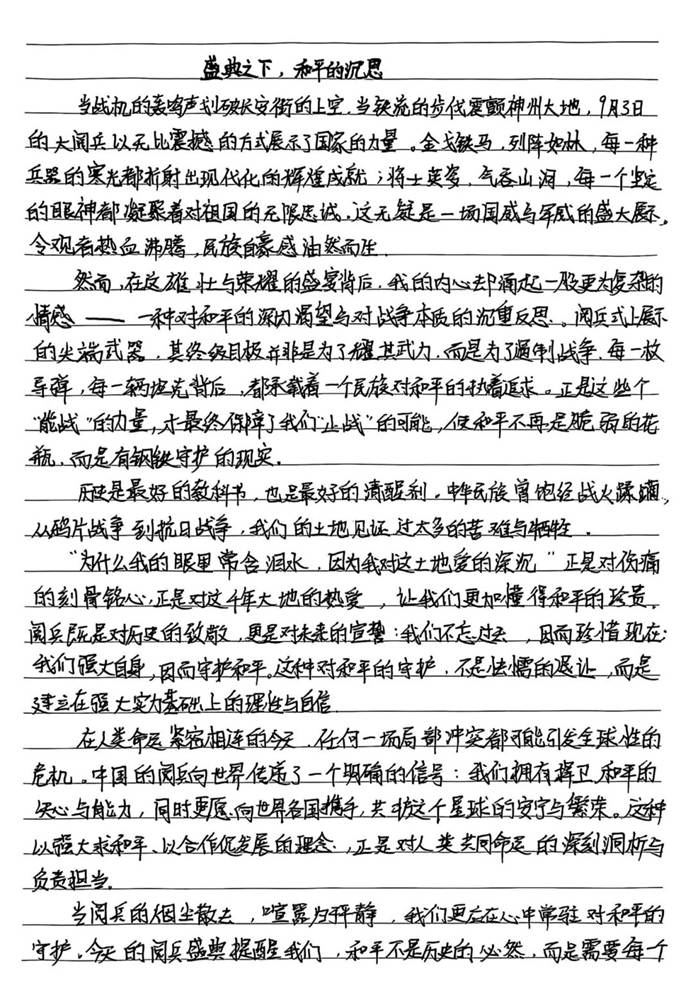 盛典之下，和平的沉思
当战机的轰鸣声划破长安街的上空，当铁流的步伐震颤神州大地，9月3日
的大阅兵以无比震撼的方式展示了国家的力量。金戈铁马，列阵如林，每一种
兵器的寒光都折射出现代化的辉煌成就；将士英姿，气吞山河，每一个坚定
的眼神都凝聚着对祖国的无限忠诚。这无疑是一场国威与军威的盛大展示，
令观者热血沸腾，民族自豪感油然而生。
然而，在这雄壮与荣耀的盛宴背后，我的内心却涌起一股更为复杂的
情感——一种对和平的深切渴望与对战争本质的沉重反思。阅兵式上展示
的尖端武器，其终级目标并非是为了耀其武力，而是为了遏制战争，每一枚
导弹，每一辆坦克背后，都承载着一个民族对和平的执着追求。正是这些个
“能战”的力量，才最终保障了我们“止战”的可能，使和平不再是脆弱的花
瓶，而是有钢铁守护的现实。
历史是最好的教科书，也是最好的清醒剂。中华民族曾饱经战火蹂躏，
从鸦片战争到抗日战争，我们的土地见证过太多的苦难与牺牲。
“为什么我的眼里常含泪水，因为我对这土地爱的深沉”正是对伤痛
的刻骨铭心，正是对这千年大地的热爱，让我们更加懂得和平的珍贵。
阅兵既是对历史的致敬，更是对未来的宣誓：我们不忘过去，因而珍惜现在；
我们强大自身，因而守护和平。这种对和平的守护，不是怯懦的退让，而是
建立在强大实力基础上的理性与自信。
在人类命运紧密相连的今天，任何一场局部冲突都可能引发全球性的
危机。中国的阅兵向世界传递了一个明确的信号：我们拥有捍卫和平的
决心与能力，同时更愿向世界各国携手，共护这个星球的安宁与繁荣。这种
以强大求和平、以合作促发展的理念，正是对人类共同命运的深刻洞析与
负责担当。
当阅兵的烟尘散去，喧嚣归于平静，我们更应在心中常驻对和平的
守护。今天的阅兵盛典提醒我们，和平不是历史的必然，而是需要每个